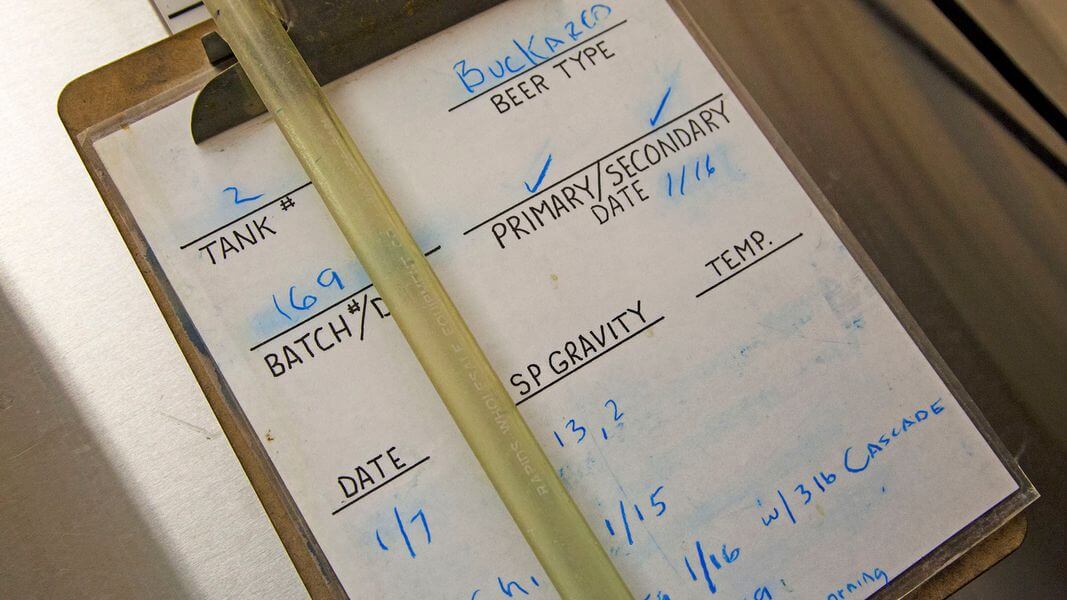 BUCKAROO
BEER TYPE
2
TANK #
PRIMARY/SECONDARY
DATE 1/16
169
BATCH#/D
TEMP.
SP GRAVITY
13,2
DATE
1/7
1/15
1/16 w/3 lb CASCADE
RAPIDS WHOLESALE EQUIPMENT CO